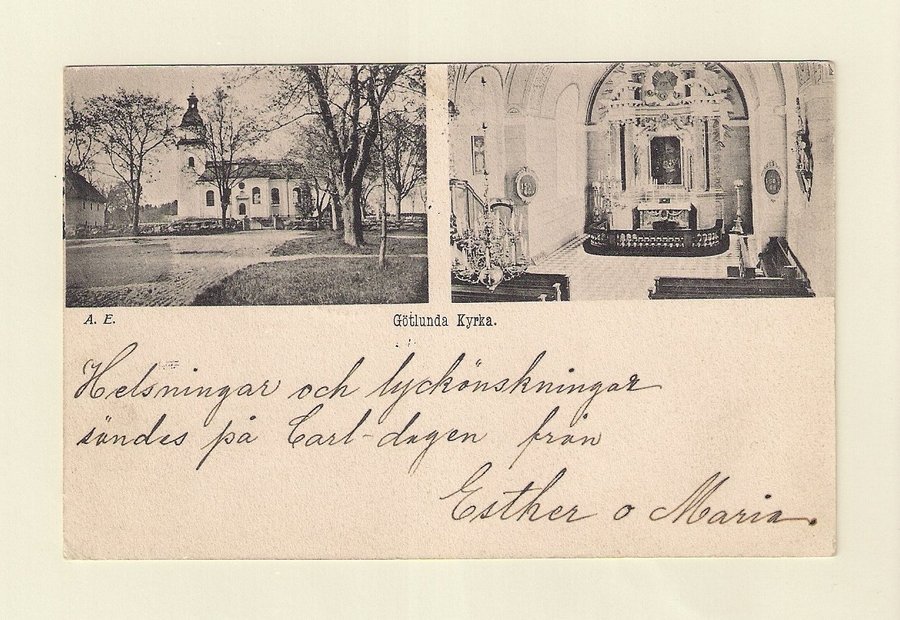 A. E.
Götlunda Kyrka.
Helsningar och lyckönskningar
sändes på Carl-dagen från
Esther o Maria.